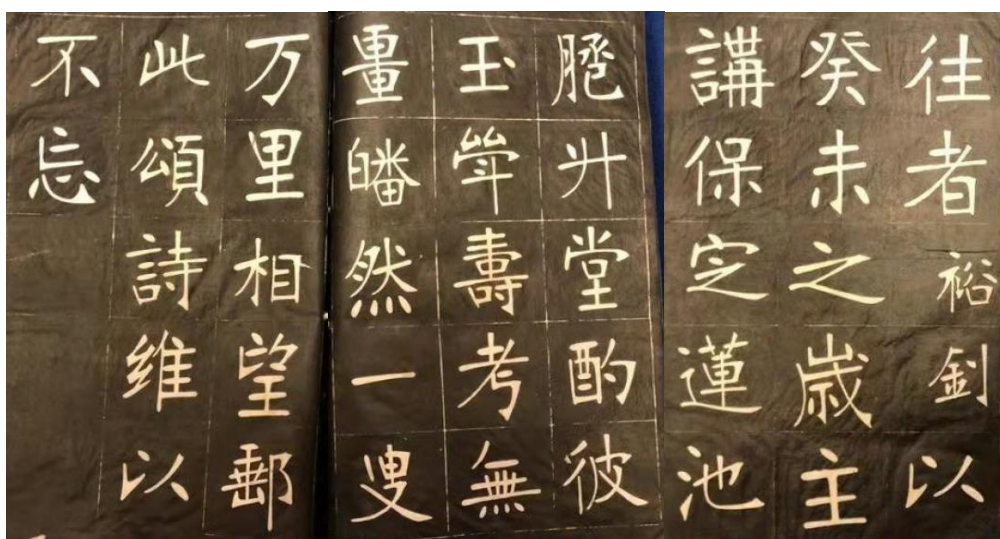 往者裕釗以
癸未之歲主
講保定蓮池
升堂酌彼
玉斝壽考無
量皤然一叟
万里相望郵
此頌詩維以
不忘